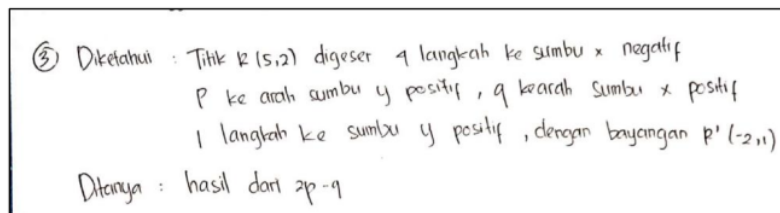 ③ Diketahui : Titik R (5,2) digeser 4 langkah ke sumbu x negatif
P ke arah sumbu y positif, q kearah sumbu x positif
1 langkah ke sumbu y positif, dengan bayangan R' (-2,1)
Ditanya : hasil dari 2p-q